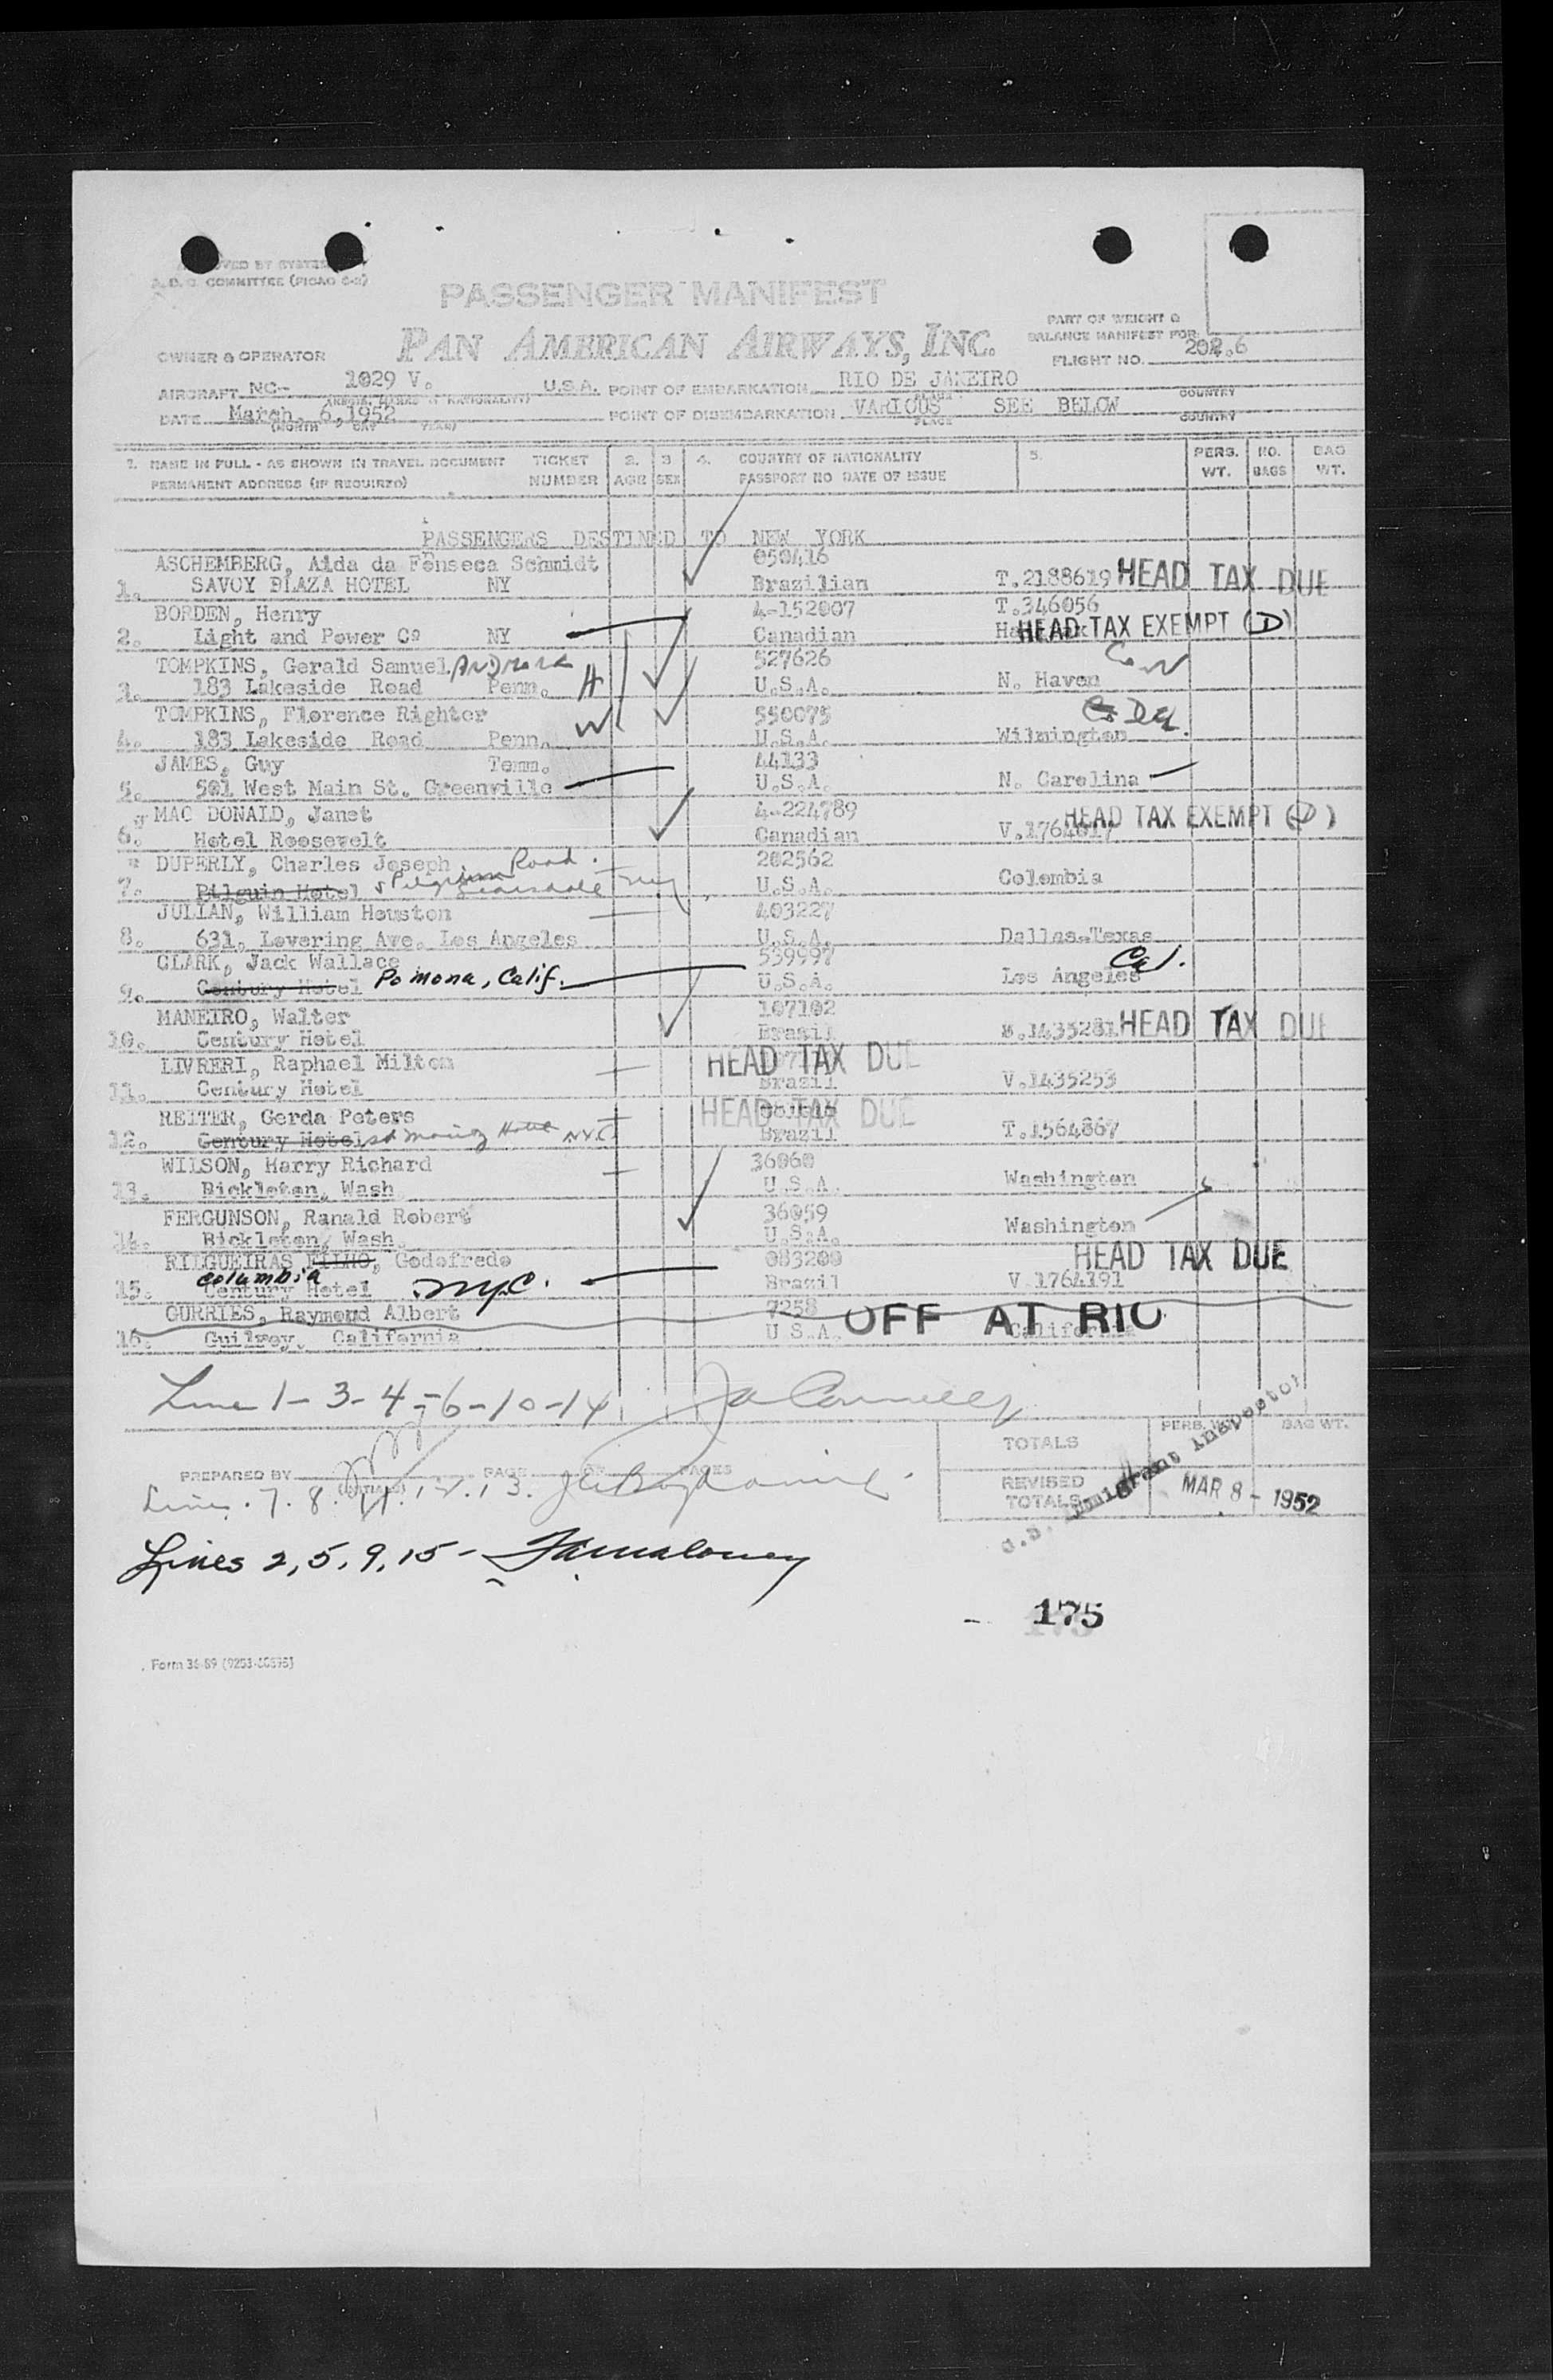 APPROVED BY SYSTEM
A.D.C. COMMITTEE (PICAO 6-2)
PASSENGER MANIFEST
PAN AMERICAN AIRWAYS, INC.
PART OF WEIGHT &
BALANCE MANIFEST FOR
OWNER & OPERATOR
FLIGHT NO. 202.6
AIRCRAFT NC- 1029 V. U.S.A. POINT OF EMBARKATION RIO DE JANEIRO COUNTRY
DATE March, 6, 1952 POINT OF DISEMBARKATION VARIOUS SEE BELOW COUNTRY
(MONTH DAY YEAR) PLACE
1. NAME IN FULL - AS SHOWN IN TRAVEL DOCUMENT TICKET 2. 3 4. COUNTRY OF NATIONALITY 5. PERS. NO. BAG
PERMANENT ADDRESS (IF REQUIRED) NUMBER AGE SEX PASSPORT NO DATE OF ISSUE WT. BAGS WT.
PASSENGERS DESTINED TO NEW YORK
ASCHEMBERG, Aida da Fonseca Schmidt 050416
1. SAVOY PLAZA HOTEL NY Brazilian T.2188619 HEAD TAX DUE
BORDEN, Henry 4-152007 T.346056
2. Light and Power Co NY Canadian HEAD TAX EXEMPT (D)
TOMPKINS, Gerald Samuel 527626
3. 183 Lakeside Road Penn. H U.S.A. N. Haven
TOMPKINS, Florence Righter 550075
4. 183 Lakeside Road Penn. W U.S.A. Wilmington Del.
JAMES, Guy Tenn. 44133
5. 501 West Main St. Greenville U.S.A. N. Carolina
MAC DONALD, Janet 4-224789 HEAD TAX EXEMPT (D)
6. Hotel Roosevelt Canadian V.1764017
DUPERLY, Charles Joseph Road. 202562
7. Pilguin Hotel Pilgrim Scarsdale U.S.A. Colombia
JULIAN, William Houston 403227
8. 631. Levering Ave. Los Angeles U.S.A. Dallas-Texas
CLARK, Jack Wallace 539997 Cal.
9. Century Hotel Pomona, Calif. U.S.A. Los Angeles
MANEIRO, Walter 107102
10. Century Hotel Brazil 1435281 HEAD TAX DUE
LIVRERI, Raphael Milton HEAD TAX DUE
11. Century Hotel Brazil V.1435253
REITER, Gerda Peters HEAD TAX DUE
12. Century Hotel St Moritz Hotel NYC Brazil T.1564867
WILSON, Harry Richard 36060
13. Bickleton, Wash. U.S.A. Washington
FERGUNSON, Ranald Robert 36059
14. Bickleton, Wash. U.S.A. Washington
FILGUEIRAS FILHO, Godofredo 083200 HEAD TAX DUE
Columbia
15. Century Hotel NYC. Brazil V 1764191
CURRIES, Raymond Albert 7258 OFF AT RIO
16. Guilroy, California U.S.A. California
Line 1-3-4-6-10-14
TOTALS PERS. WT. BAG WT.
PREPARED BY PAGE OF PAGES
(INITIALS)
REVISED
TOTALS
Lines. 7. 8. 11. 12. 13.
U.S. Immigrant Inspector
MAR 8 - 1952
Lines 2, 5, 9, 15 -
- 175
Form 36-89